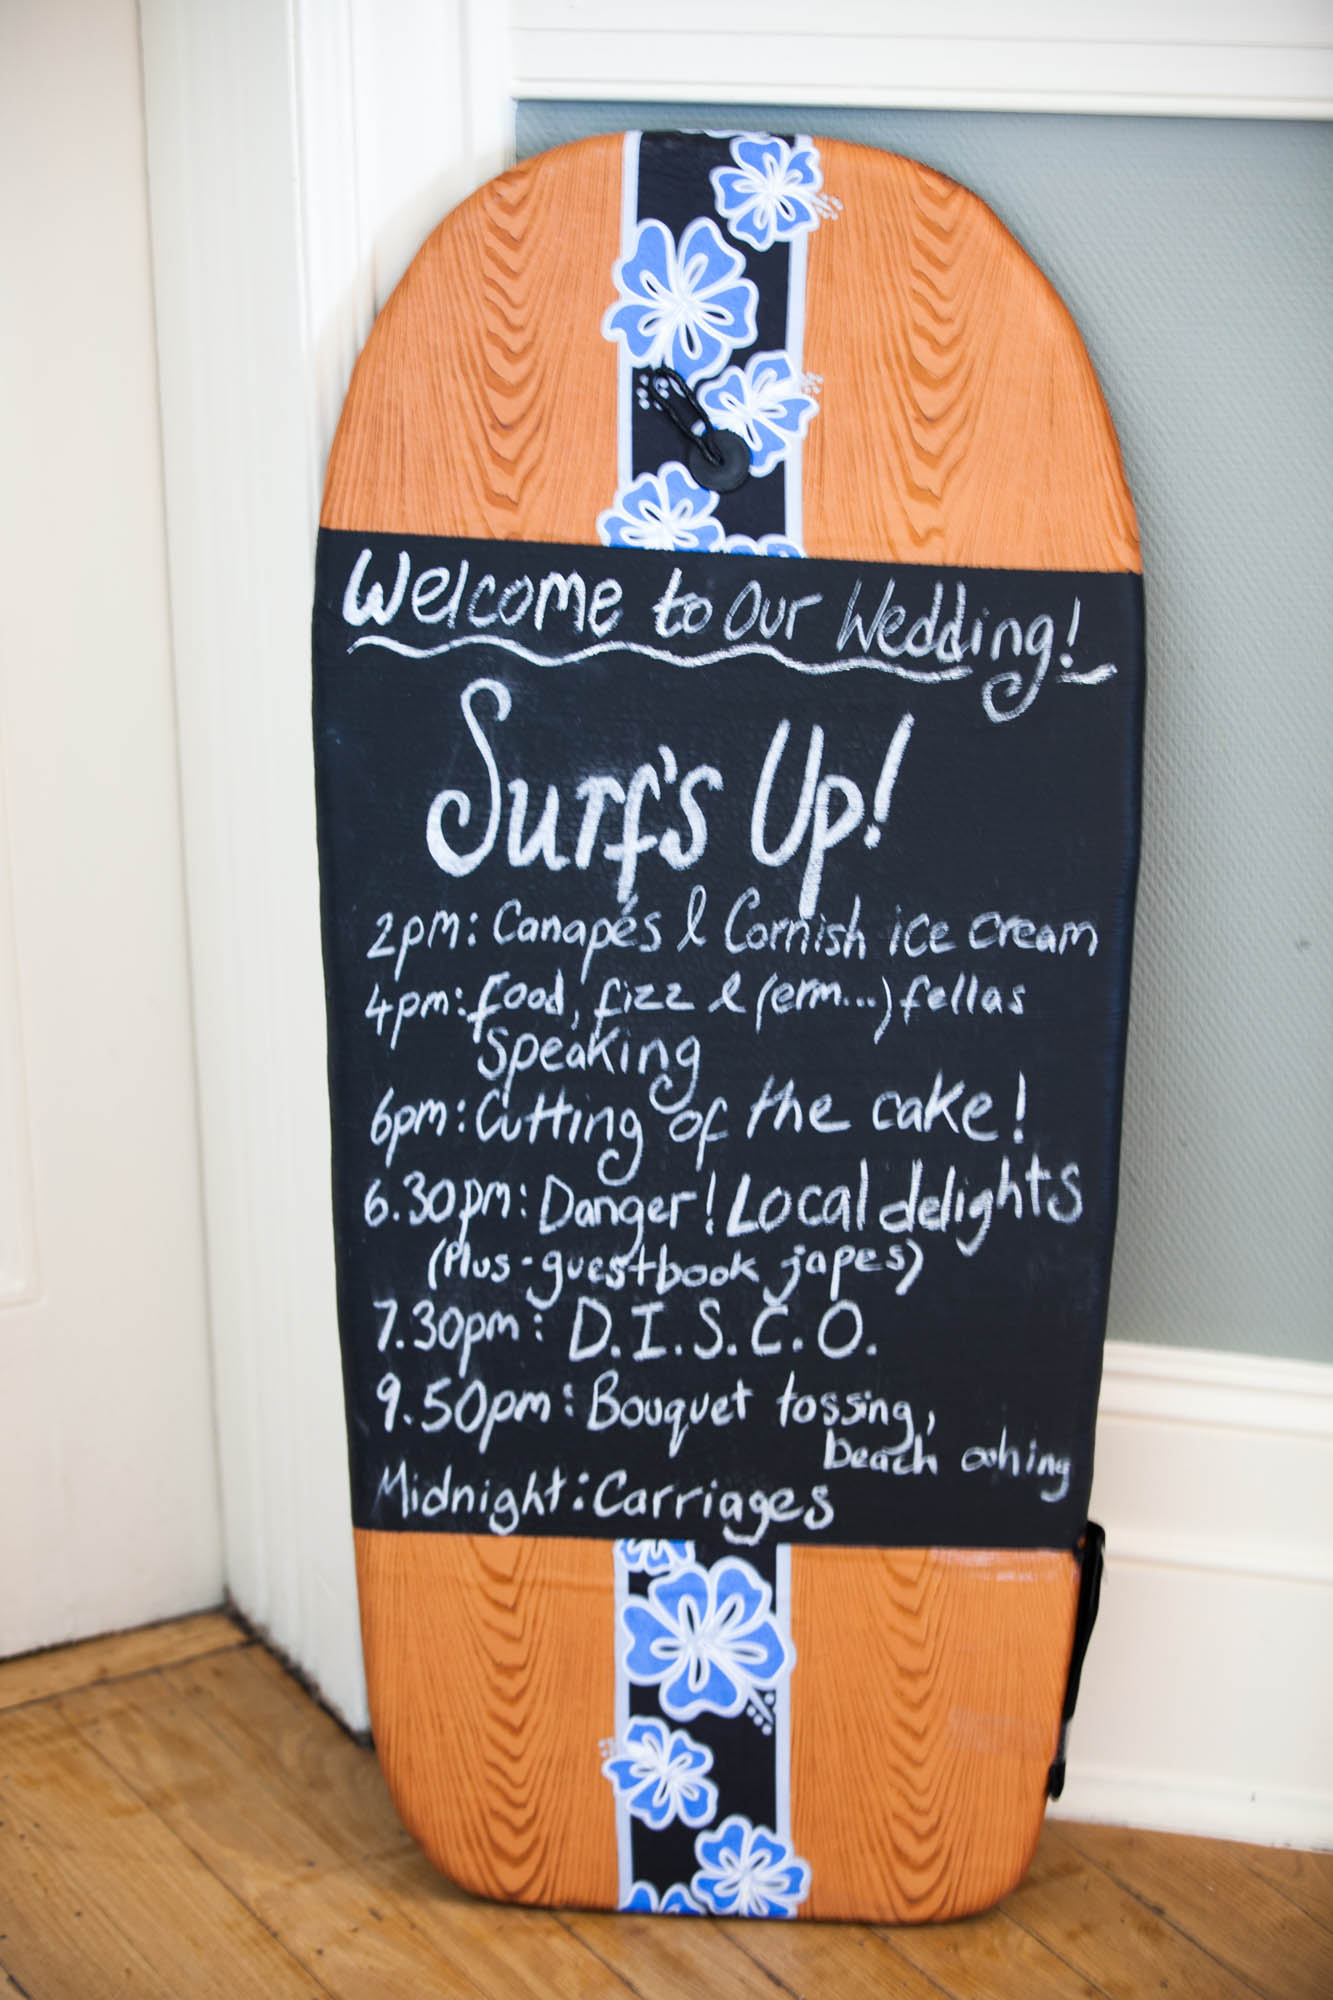 Welcome to Our Wedding!
Surf's Up!
2pm: Canapés & Cornish ice cream
4pm: Food, fizz & (erm...) fellas
speaking
6pm: Cutting of the cake!
6.30pm: Danger! Local delights
(Plus - guestbook japes)
7.30pm: D.I.S.C.O.
9.50pm: Bouquet tossing,
beach
Midnight: Carriages